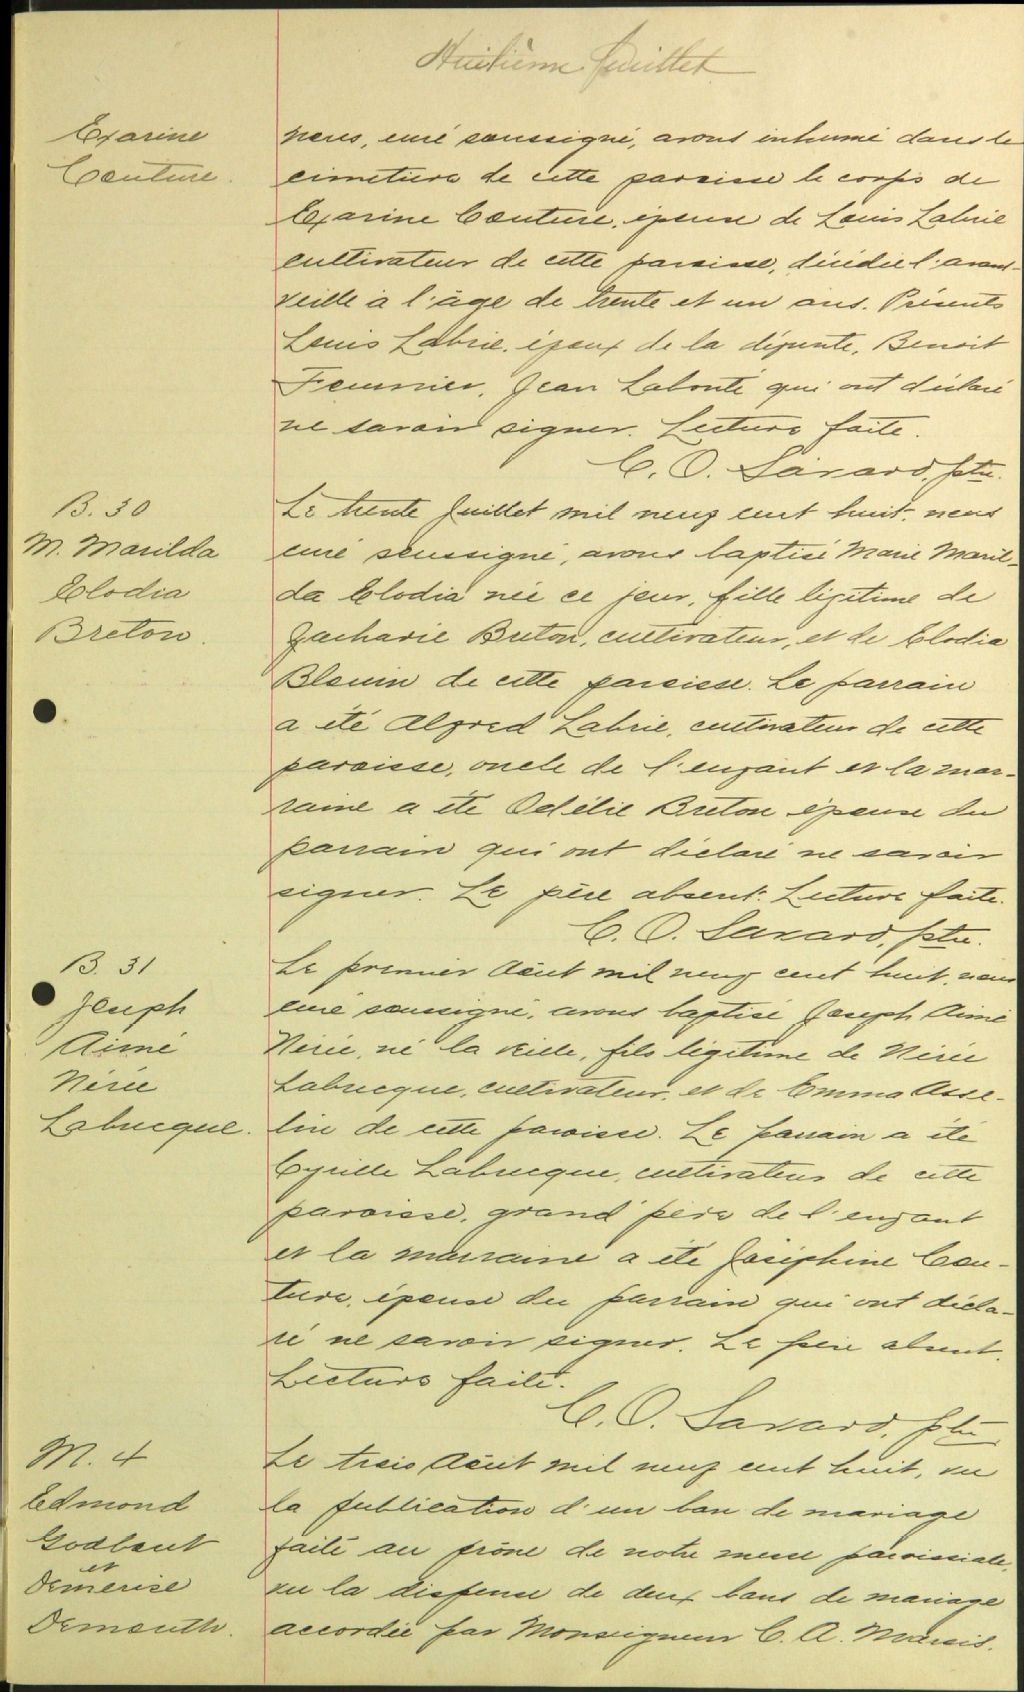 Huitième feuillet
Exarine
Couture.
nous, curé soussigné, avons inhumé dans le
cimetière de cette paroisse le corps de
Exarine Couture, épouse de Louis Labrie
cultivateur de cette paroisse, décédée l'avant-
veille à l'âge de trente et un ans. Présents
Louis Labrie, époux de la défunte, Benoit
Fournier, Jean Labonté qui ont déclaré
ne savoir signer. Lecture faite.
C. O. Savard, ptre.
B. 30
M. Marilda
Elodia
Breton.
Le trente Juillet mil neuf cent huit, nous
curé soussigné, avons baptisé Marie Maril-
da Elodia née ce jour, fille légitime de
Zacharie Breton, cultivateur, et de Elodia
Blouin de cette paroisse. Le parrain
a été Alfred Labrie, cultivateur de cette
paroisse, oncle de l'enfant et la mar-
raine a été Odélie Breton épouse du
parrain qui ont déclaré ne savoir
signer. Le père absent. Lecture faite.
C. O. Savard, ptre.
B. 31
Joseph
Aimé
Nérée
Labrecque.
Le premier Août mil neuf cent huit, nous
curé soussigné, avons baptisé Joseph Aimé
Nérée, né la veille, fils légitime de Nérée
Labrecque, cultivateur, et de Emma Asse-
lin de cette paroisse. Le parrain a été
Cyrille Labrecque, cultivateur de cette
paroisse, grand'père de l'enfant
et la marraine a été Joséphine Cou-
ture, épouse du parrain qui ont décla-
ré ne savoir signer. Le père absent.
Lecture faite.
C. O. Savard, ptre
M. 4
Edmond
Godbout
et
Démerise
Demeuth.
Le trois Août mil neuf cent huit, vu
la publication d'un ban de mariage
faite au prône de notre messe paroissiale,
vu la dispense de deux bans de mariage
accordée par Monseigneur C. A. Marois,